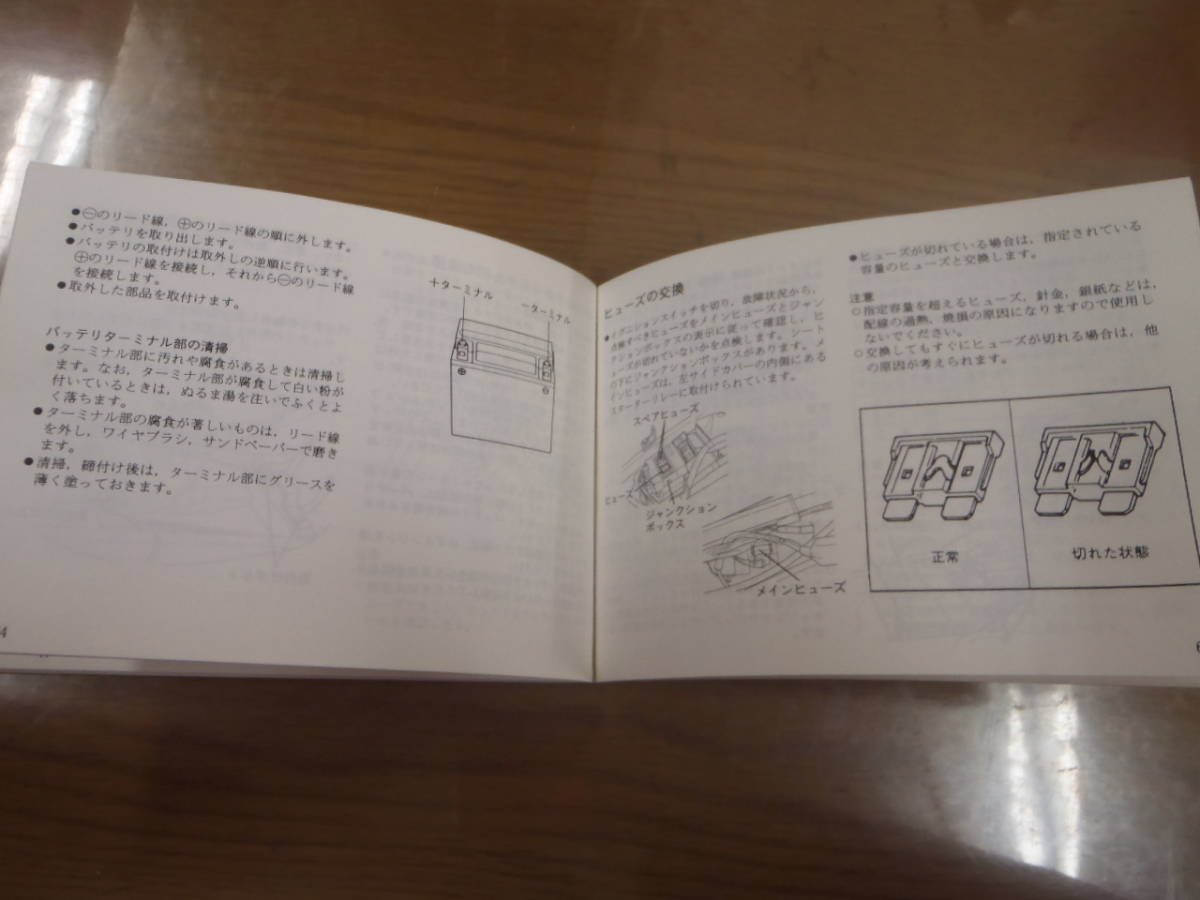 ●⊖のリード線，⊕のリード線の順に外します。
●バッテリを取り出します。
●バッテリの取付けは取外しの逆順に行います。
⊕のリード線を接続し，それから⊖のリード線
を接続します。
●取外した部品を取付けます。
バッテリターミナル部の清掃
●ターミナル部に汚れや腐食があるときは清掃し
ます。なお，ターミナル部が腐食して白い粉が
付いているときは，ぬるま湯を注いでふくとよ
く落ちます。
●ターミナル部の腐食が著しいものは，リード線
を外し，ワイヤブラシ，サンドペーパーで磨き
ます。
●清掃，締付け後は，ターミナル部にグリースを
薄く塗っておきます。
＋ターミナル
−ターミナル
⊕
⊖
4
ヒューズの交換
●イグニションスイッチを切り，故障状況から，
点検すべきヒューズをメインヒューズとジャン
クションボックスの表示に従って確認し，ヒ
ューズが切れていないかを点検します。 シート
の下にジャンクションボックスがあります。メ
インヒューズは，左サイドカバーの内側にある
スターターリレーに取付けられています。
スペアヒューズ
ヒューズ
ジャンクション
ボックス
メインヒューズ
●ヒューズが切れている場合は，指定されている
容量のヒューズと交換します。
注意
○指定容量を超えるヒューズ，針金，銀紙などは，
配線の過熱，焼損の原因になりますので使用し
ないでください。
○交換してもすぐにヒューズが切れる場合は，他
の原因が考えられます。
正常
切れた状態
6